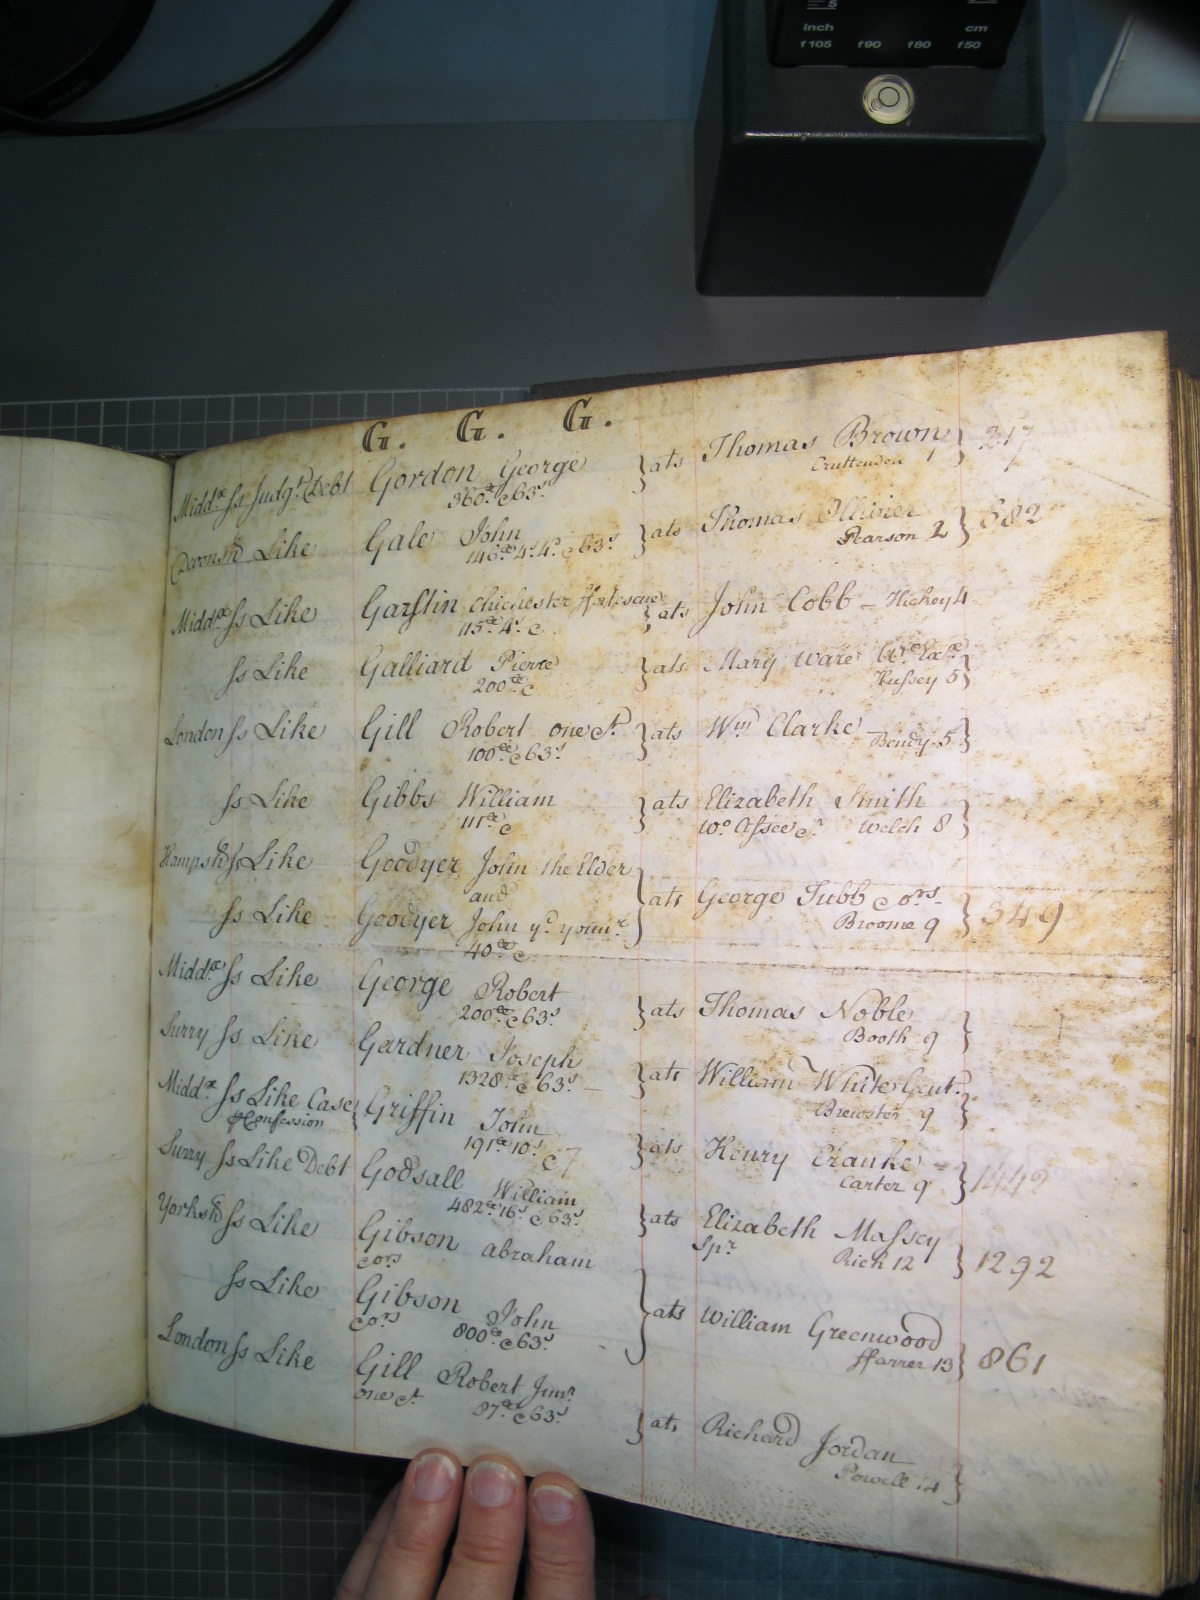 inch cm
f105 f90 f80 f50
PHILIPS
G. G. G.
Midd:x Ss Judgt: Debt Gordon George } ats Thomas Brown } 217
360:£ & 63:s Cruttenden 1
Devonsh: Like Gale John } ats Thomas Ollivier } 682
146:£ 4:s 4:d & 63:s Pearson 2
Midd:x Ss Like Garstin Chichester ffortescue } ats John Cobb – Hickey 4
115:£ 4:s &
Ss Like Galliard Pierre } ats Mary Ware
200:£ & Hussey 5 }
London Ss Like Gill Robert one &c } ats Wm Clarke – Bendy 5 }
100:£ & 63:s
Ss Like Gibbs William } ats Elizabeth Smith }
111:£ & Welch 8
Hampsh: Ss Like Goodyer John the Elder
and } ats George Tubb & ors }
Ss Like Goodyer John ye youngr: Broome 9 349
40:£ &
Midd:x Ss Like George Robert } ats Thomas Noble }
200:£ & 63:s Booth 9
Surry Ss Like Gardner Joseph } ats William White Gent: }
1328:£ & 63:s – Brewster 9
Midd:x Ss Like Case } Griffin John } ats Henry Cranke } 1442
Confession 191:£ 10:s & Carter 9
Surry Ss Like Debt Godsall William } ats Elizabeth Massey } 1292
482:£ 16:s & 63:s Spr: Rich 12
Yorksh: Ss Like Gibson abraham
& ors
Ss Like Gibson John } ats William Greenwood } 861
& ors 800:£ & 63:s ffarrer 13
London Ss Like Gill Robert Junr: } ats Richard Jordan }
one &c 87:£ & 63:s Powell 14